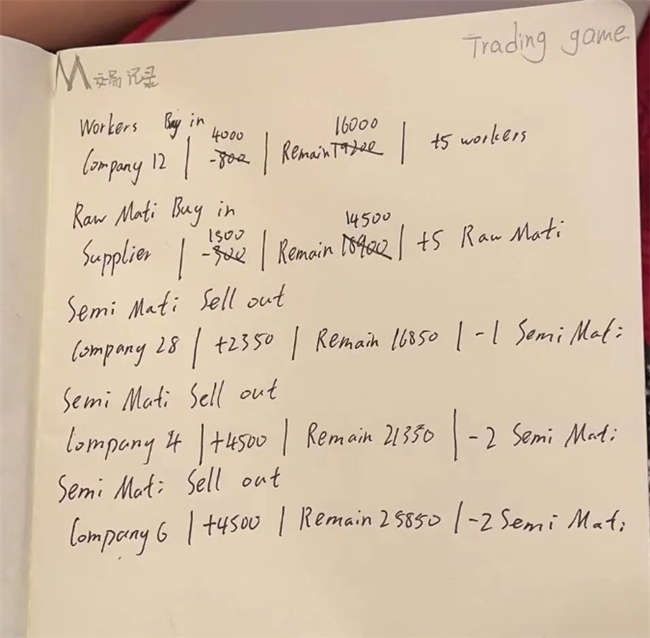 Trading game
M 交易记录
Workers Buy in
4000 16000
Company 12 | -800 | Remain 19200 | +5 workers
Raw Mati Buy in
1500 14500
Supplier | -300 | Remain 18900 | +5 Raw Mati
Semi Mati Sell out
Company 28 | +2350 | Remain 16850 | -1 Semi Mati
Semi Mati Sell out
Company 4 | +4500 | Remain 21350 | -2 Semi Mati
Semi Mati Sell out
Company 6 | +4500 | Remain 25850 | -2 Semi Mati